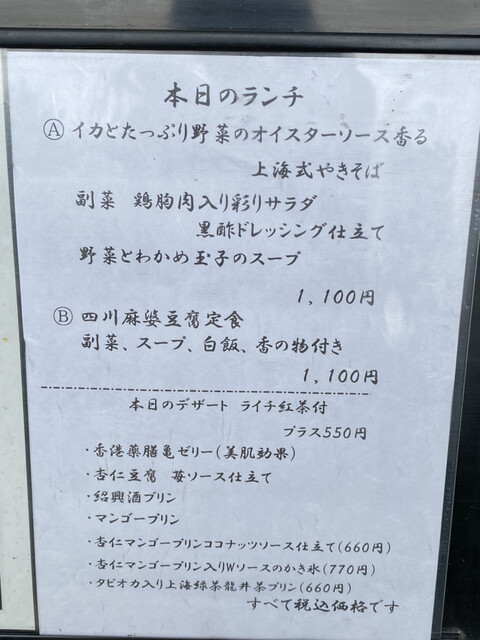 本日のランチ
Ⓐ イカとたっぷり野菜のオイスターソース香る
上海式やきそば
副菜 鶏胸肉入り彩りサラダ
黒酢ドレッシング仕立て
野菜とわかめ玉子のスープ
1,100円
Ⓑ 四川麻婆豆腐定食
副菜、スープ、白飯、香の物付き
1,100円
本日のデザート ライチ紅茶付
プラス550円
・香港薬膳亀ゼリー(美肌効果)
・杏仁豆腐 苺ソース仕立て
・紹興酒プリン
・マンゴープリン
・杏仁マンゴープリンココナッツソース仕立て(660円)
・杏仁マンゴープリン入りWソースのかき氷(770円)
・タピオカ入り上海緑茶龍井茶プリン(660円)
すべて税込価格です